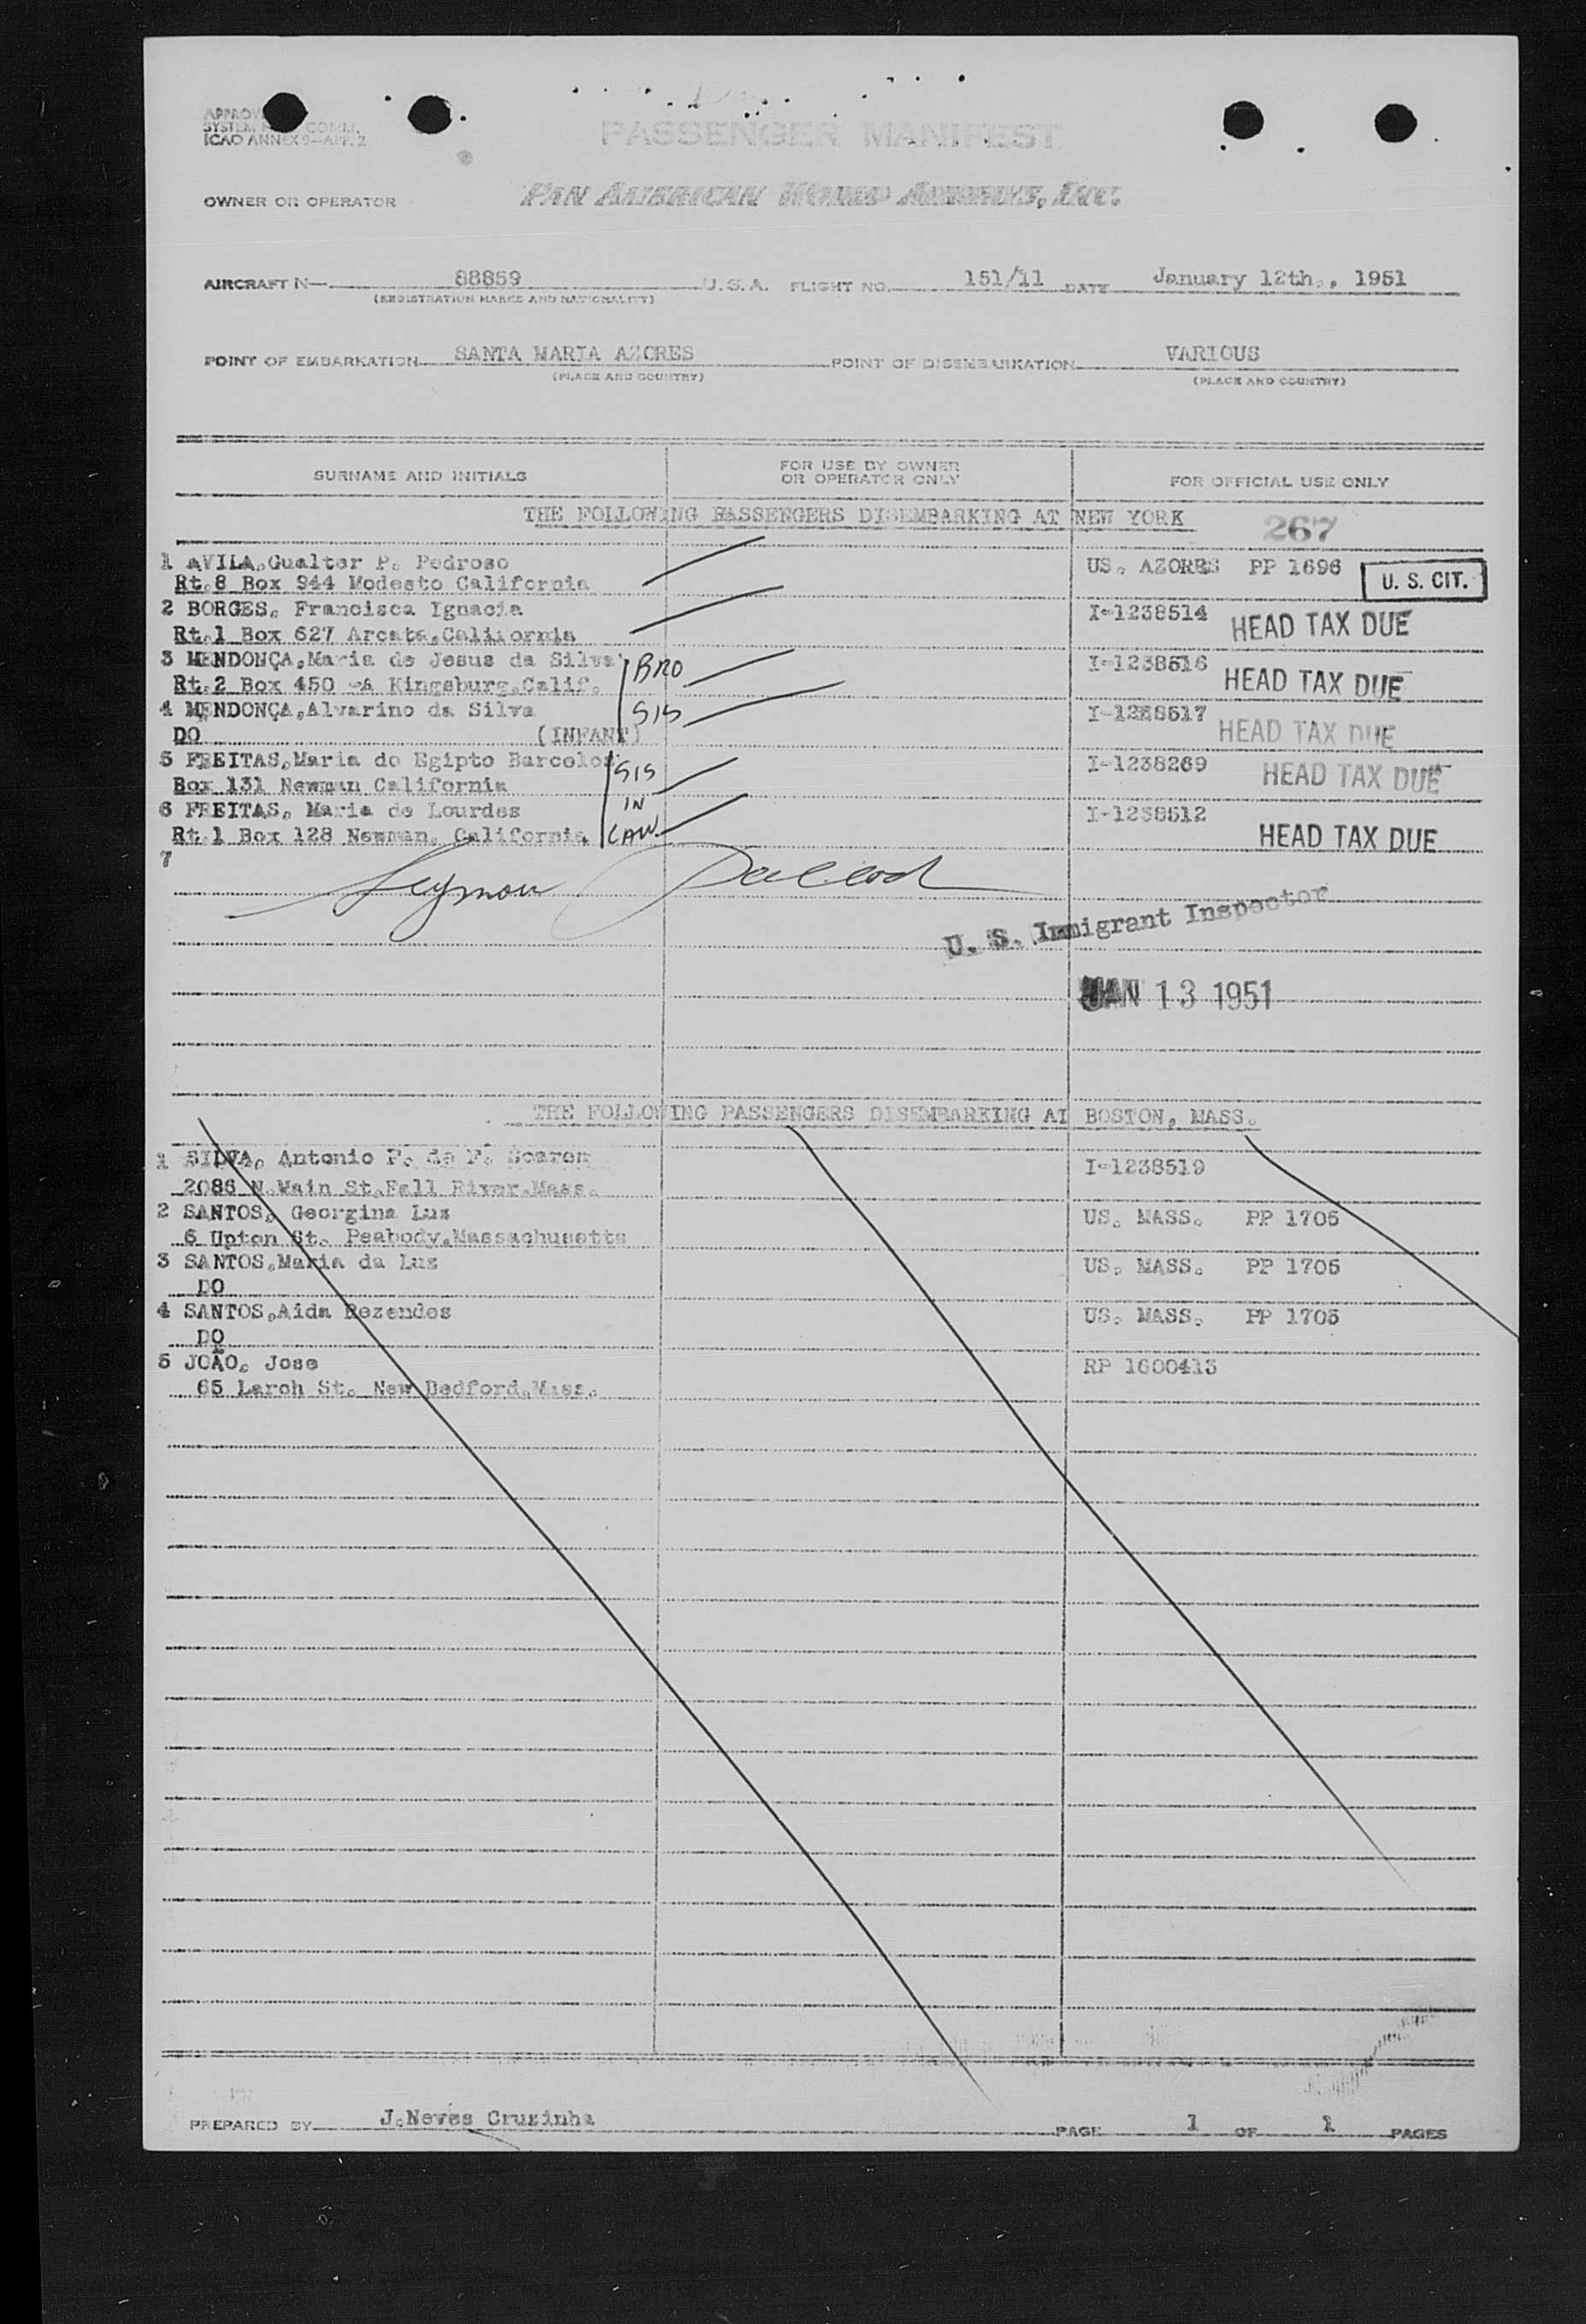 APPROV
SYSTEM COMM.
ICAO ANNEX 9—APP. 2
PASSENGER MANIFEST
OWNER OR OPERATOR PAN AMERICAN WORLD AIRWAYS, INC.
AIRCRAFT N— 88859 U. S. A. FLIGHT NO. 151/11 DATE January 12th., 1951
(REGISTRATION MARKS AND NATIONALITY)
POINT OF EMBARKATION SANTA MARIA AZORES POINT OF DISEMBARKATION VARIOUS
(PLACE AND COUNTRY) (PLACE AND COUNTRY)
SURNAME AND INITIALS FOR USE BY OWNER OR OPERATOR ONLY FOR OFFICIAL USE ONLY
THE FOLLOWING PASSENGERS DISEMBARKING AT NEW YORK
267
1 AVILA,Gualter P. Pedroso US. AZORES PP 1696 U. S. CIT.
Rt.8 Box 944 Modesto California
2 BORGES, Francisca Ignacia I-1238514 HEAD TAX DUE
Rt.1 Box 627 Arcata,California
3 MENDONÇA,Maria de Jesus da Silva BRO I-1238516 HEAD TAX DUE
Rt.2 Box 450 -A Kingsburg,Calif.
4 MENDONÇA,Alvarino da Silva SIS I-1238517 HEAD TAX DUE
DO (INFANT)
5 FREITAS,Maria do Egipto Barcelos SIS I-1238269 HEAD TAX DUE
Box 131 Newman California
6 FREITAS, Maria de Lourdes IN I-1238512 HEAD TAX DUE
Rt.1 Box 128 Newman, California LAW
7
Seymour
U. S. Immigrant Inspector
JAN 13 1951
THE FOLLOWING PASSENGERS DISEMBARKING AT BOSTON, MASS.
1 SILVA, Antonio P. de F. Soares I-1238519
2086 N.Main St.Fall River.Mass.
2 SANTOS, Georgina Luz US. MASS. PP 1705
6 Upton St. Peabody,Massachusetts
3 SANTOS,Maria da Luz US. MASS. PP 1705
DO
4 SANTOS,Aida Rezendes US. MASS. PP 1705
DO
5 JOÃO, Jose RP 1600413
65 Larch St. New Bedford,Mass.
PREPARED BY J.Neves Cruzinha PAGE 1 OF 1 PAGES